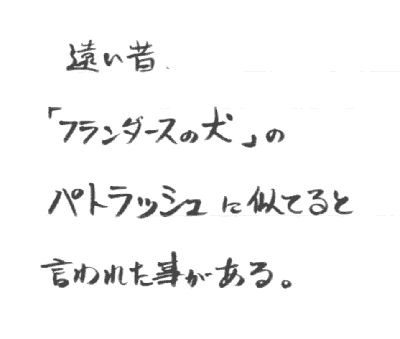 遠い昔、
「フランダースの犬」の
パトラッシュに似てると
言われた事がある。